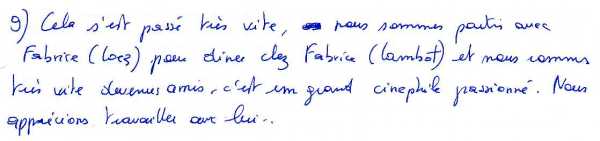 9) Cela s'est passé très vite, nous sommes partis avec
Fabrice (Locz) pour diner chez Fabrice (Lambot) et nous sommes
très vite devenus amis, c'est un grand cinéphile passionné. Nous
apprécions travailler avec lui..